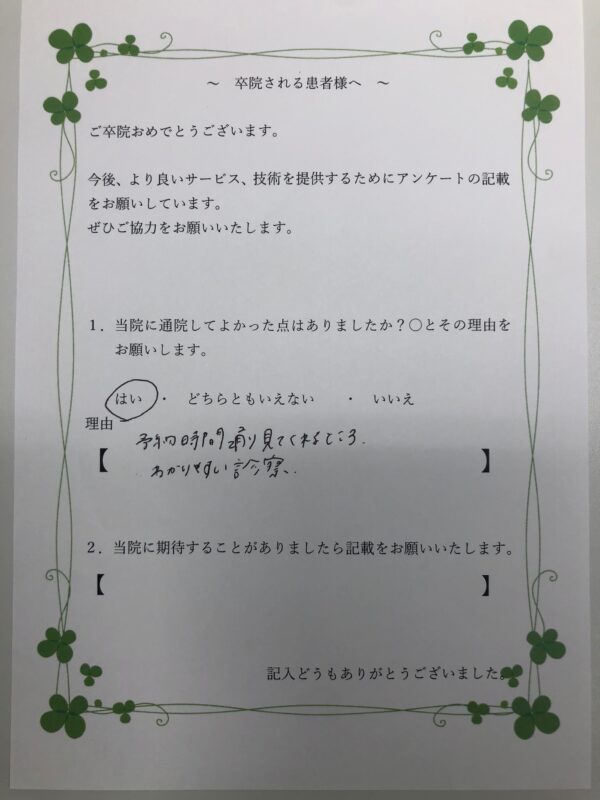 ～　卒院される患者様へ　～
ご卒院おめでとうございます。
今後、より良いサービス、技術を提供するためにアンケートの記載
をお願いしています。
ぜひご協力をお願いいたします。
１．当院に通院してよかった点はありましたか？○とその理由を
お願いします。
はい　・　どちらともいえない　・　いいえ
理由
予約時間通り見てくれるところ.
【わかりやすい診察、】
２．当院に期待することがありましたら記載をお願いいたします。
【　】
記入どうもありがとうございました。